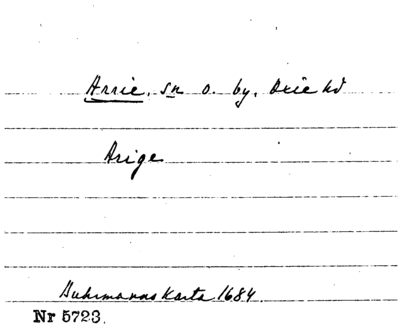 Arrie, sn o. by, Oxie hd
Arige
Buhrmanns Karta 1684.
Nr 5723.